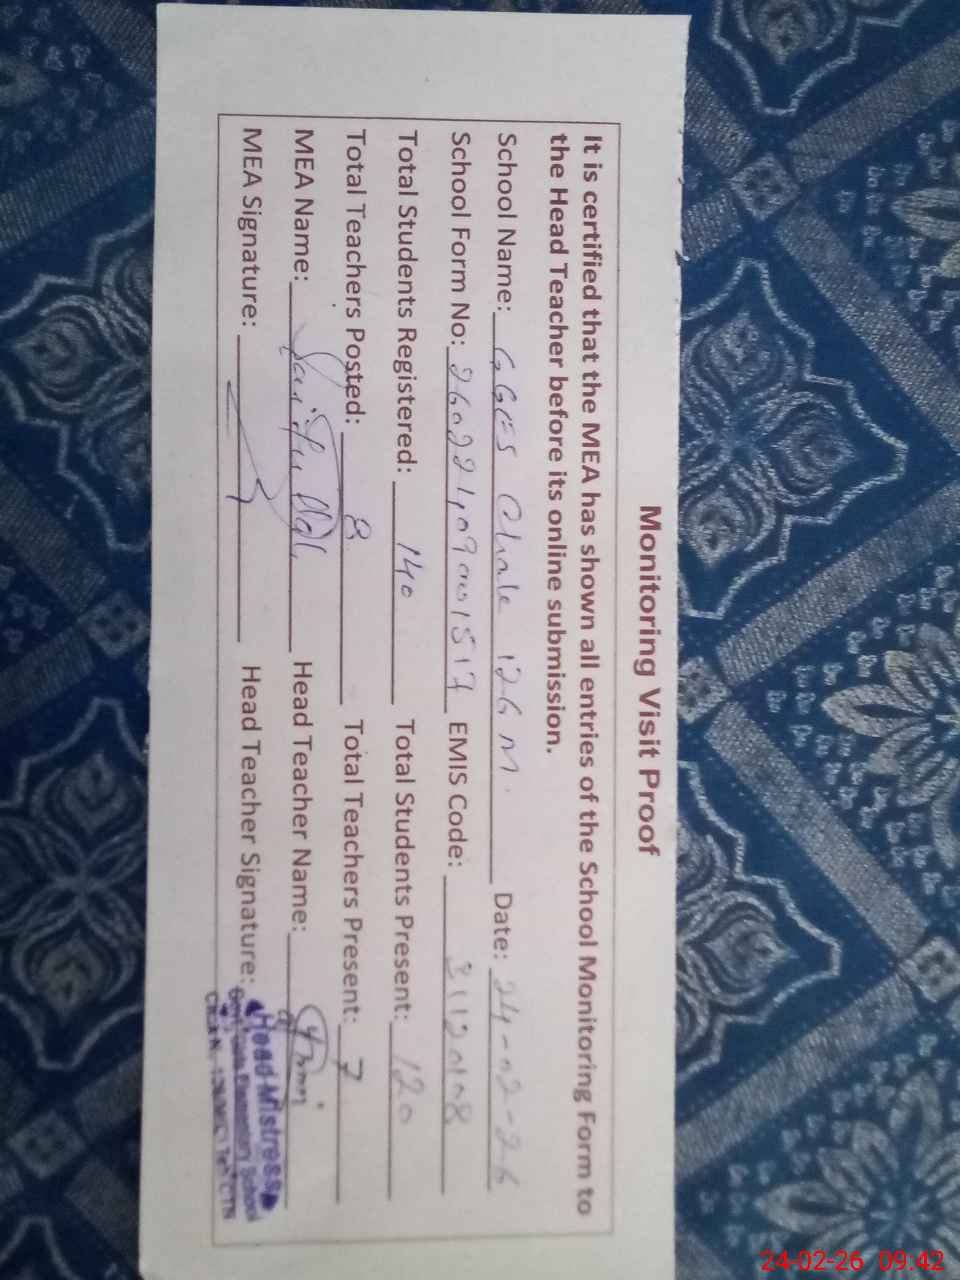 Monitoring Visit Proof
It is certified that the MEA has shown all entries of the School Monitoring Form to
the Head Teacher before its online submission.
School Name: GGES Chak 126 M. Date: 24-02-26
School Form No: EMIS Code:
Total Students Registered: 140 Total Students Present: 120
Total Teachers Posted: 8 Total Teachers Present: 7
MEA Name: Head Teacher Name:
MEA Signature: Head Teacher Signature:
Head Mistress
Elementary School
24-02-26 09:42